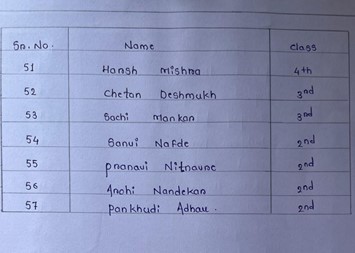 Sn. No. Name Class
51 Hansh mishna 4th
52 Chetan Deshmukh 3nd
53 Sachi Mankan 3nd
54 Sanvi Nafde 2nd
55 pnanavi Nitnavne 2nd
56 Anohi Nandekan 2nd
57 Pankhudi Adhau. 2nd